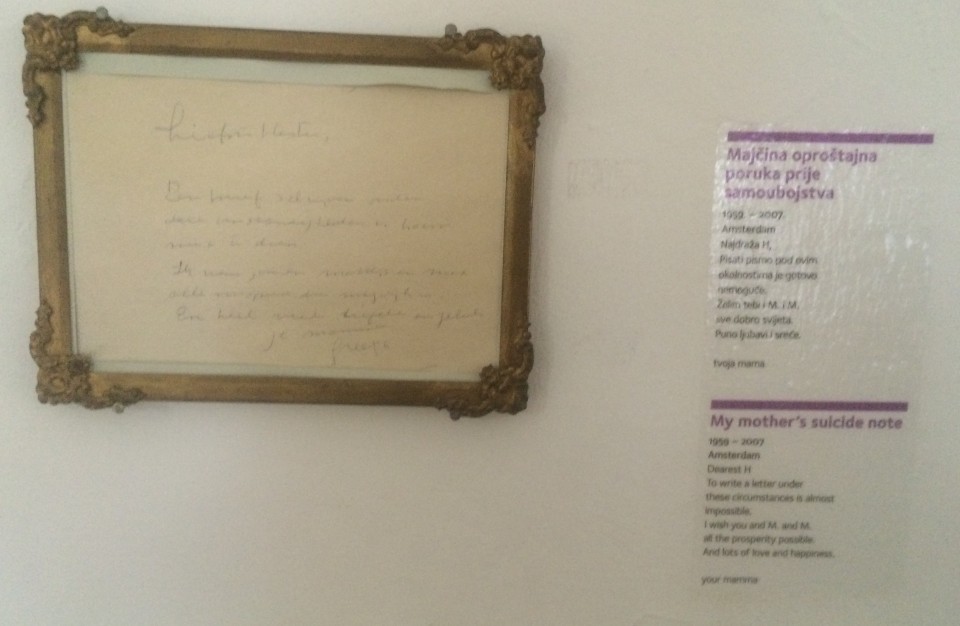 Een brief schrijven onder
deze omstandigheden is haast
Ik wens jou en
alle
En heel veel liefde en geluk
je
Majčina oproštajna
poruka prije
samoubojstva
1959. – 2007.
Amsterdam
Najdraža H,
Pisati pismo pod ovim
okolnostima je gotovo
nemoguće.
Želim tebi i M. i M.
sve dobro svijeta.
Puno ljubavi i sreće.
tvoja mama
My mother's suicide note
1959 – 2007
Amsterdam
Dearest H
To write a letter under
these circumstances is almost
impossible.
I wish you and M. and M.
all the prosperity possible.
And lots of love and happiness.
your mamma